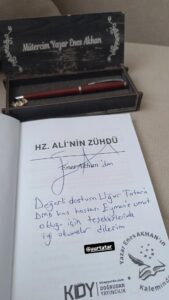 Mütercim Yazar Enes Akhan
HZ. ALİ'NİN ZÜHDÜ
Enes Akhan'dan
Değerli dostum Uğur Tatar'a
DMD kas hastası Eymen'e umut
olduğu için teşekkürlerimle
iyi okumalar dilerim
@uurtatar
KDY
DOĞRUDAN
YAYINCILIK
Yazar Enes AKHAN'ın
Kaleminden